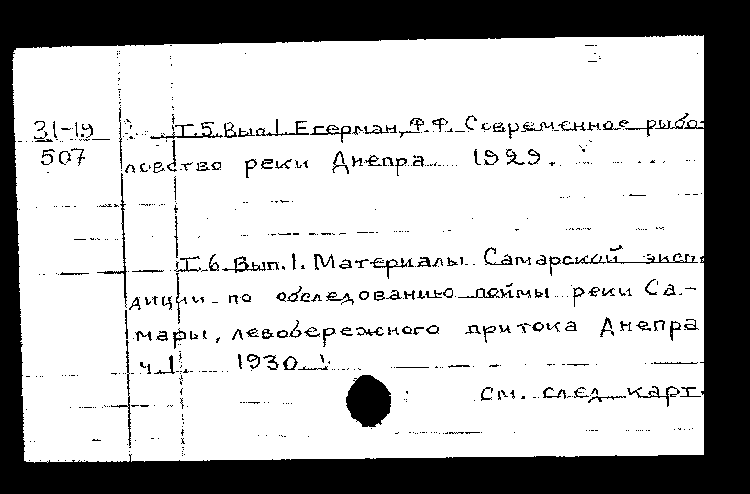 31-19 Т.5.Вып.1 Егерман, Ф.Ф. Современное рыбо-
507 ловство реки Днепра 1929.
Т.6.Вып.1. Материалы Самарской экспе
диции по обследованию поймы реки Са-
мары, левобережного притока Днепра
ч.1. 1930.
см. след карт.